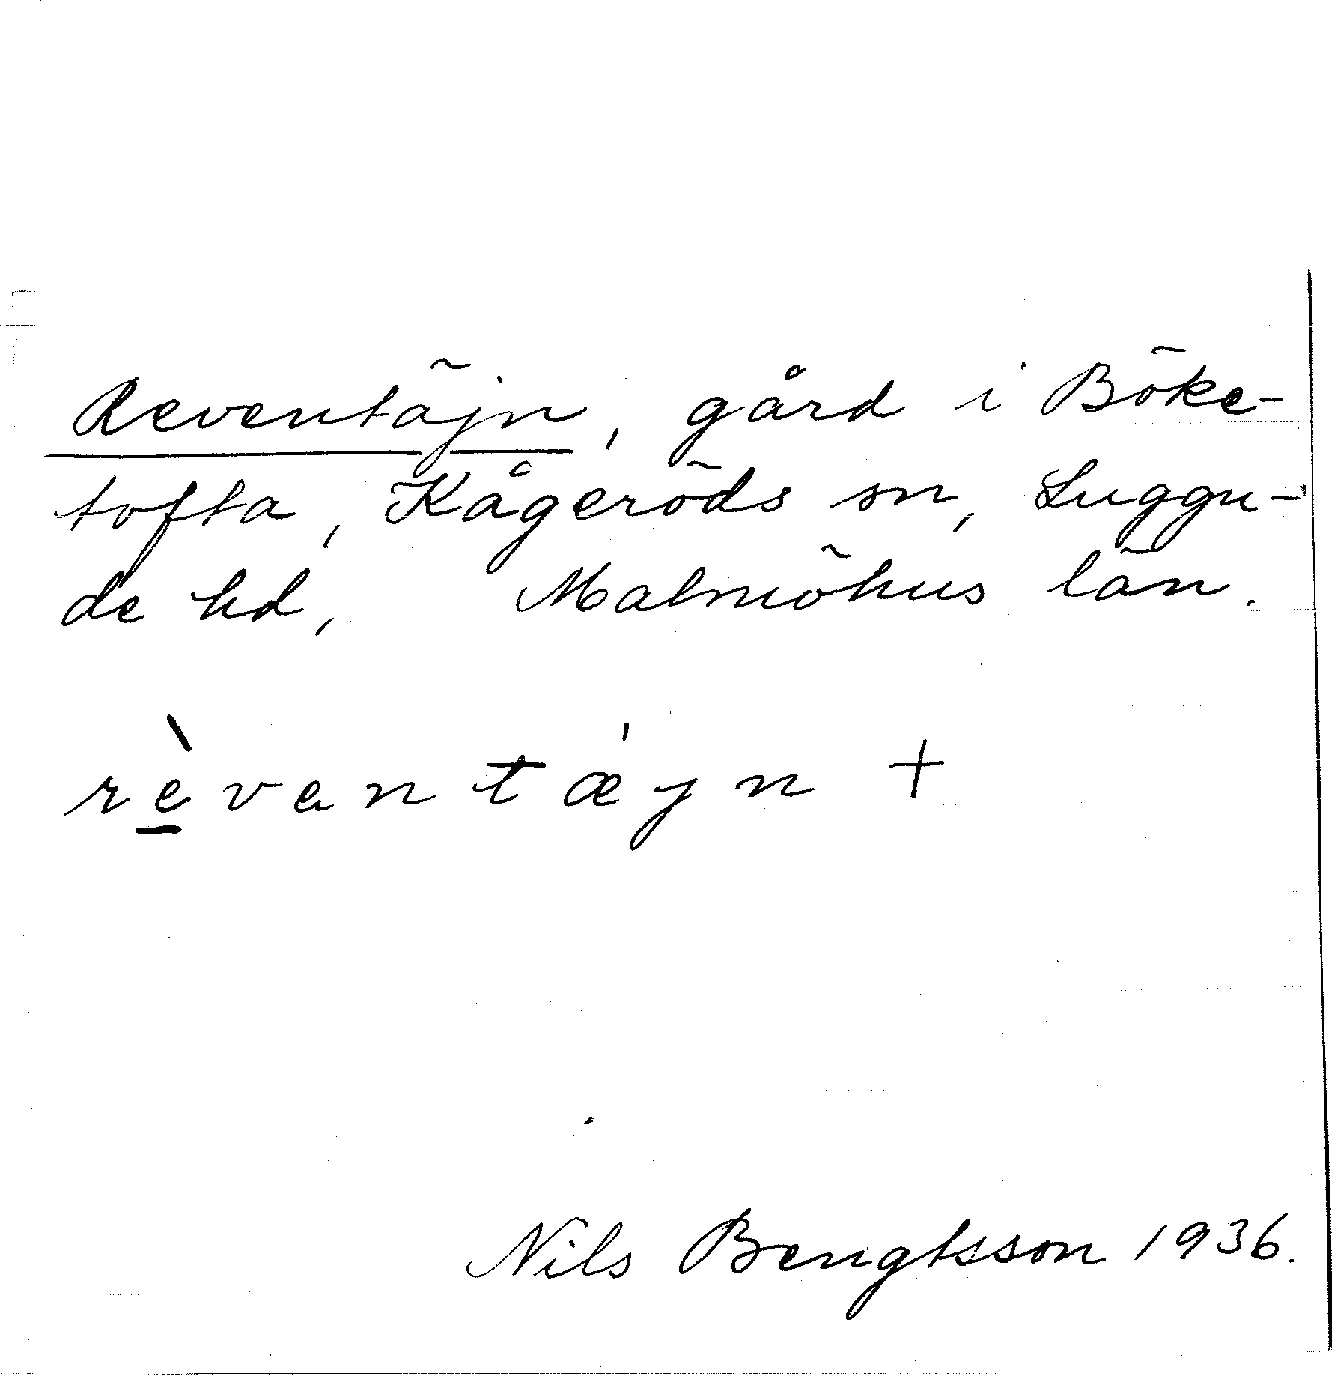 Reventäjn, gård i Böke-
tofta, Kågeröds sn, Luggu-
de hd, Malmöhus län.
rèvantæ̍jn +
Nils Bengtsson 1936.